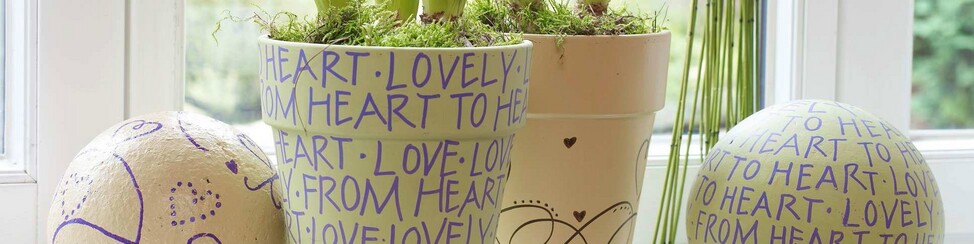 HEART · LOVELY ·
FROM HEART TO
HEART · LOVE · LOVE
· FROM HEART
· LOVE · LOVELY
TO
TO HEART
HEART TO HEART
TO HEART · LOVE
TO HEART · LOVELY
FROM HEART